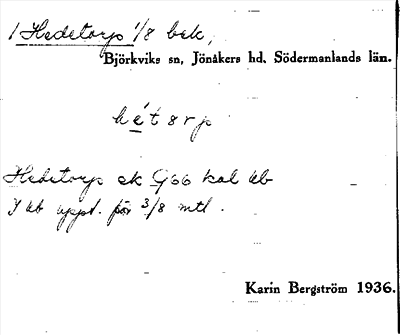 1 Hedetorp 1/8 bek,
Björkviks sn, Jönåkers hd, Södermanlands län.
hétərp
Hedetorp ek G66 kal Ub
I Ub uppt. för 3/8 mtl.
Karin Bergström 1936.